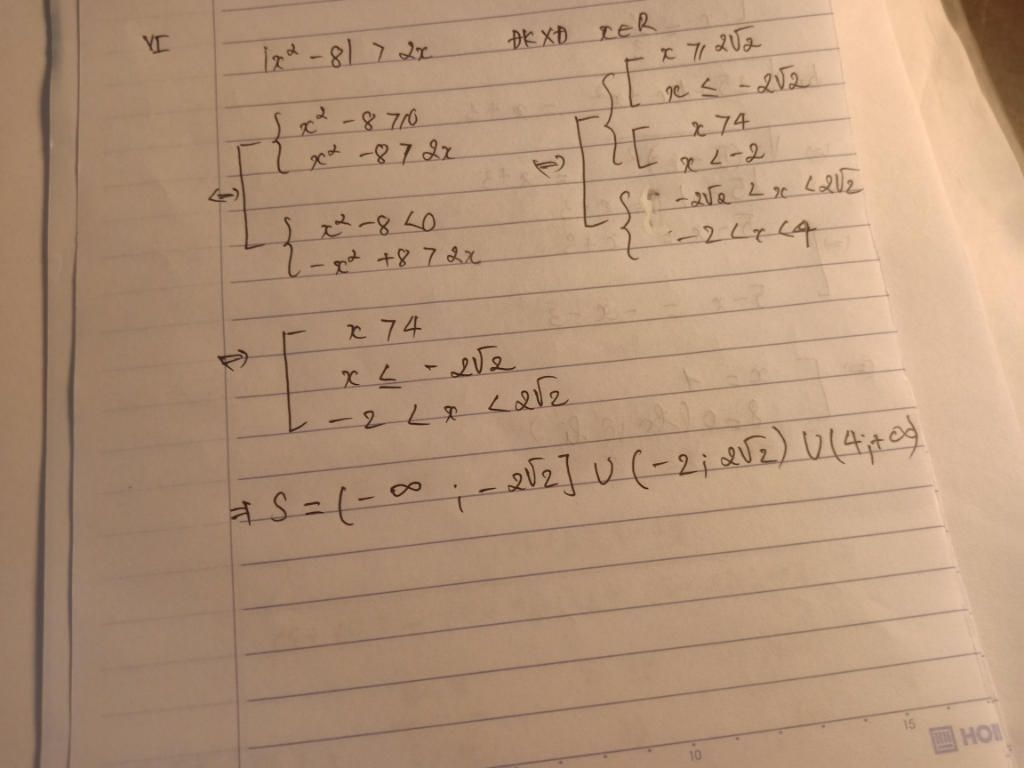 VI |x² - 8| > 2x ĐKXĐ x ∈ R
⇔ [ { x² - 8 ≥ 0
x² - 8 > 2x
{ x² - 8 < 0
-x² + 8 > 2x
⇔ [ { [ x ≥ 2√2
x ≤ -2√2
[ x > 4
x < -2
{ -2√2 < x < 2√2
-2 < x < 4
⇔ [ x > 4
x ≤ -2√2
-2 < x < 2√2
⇒ S = (-∞ ; -2√2] ∪ (-2; 2√2) ∪ (4; +∞)
10
15